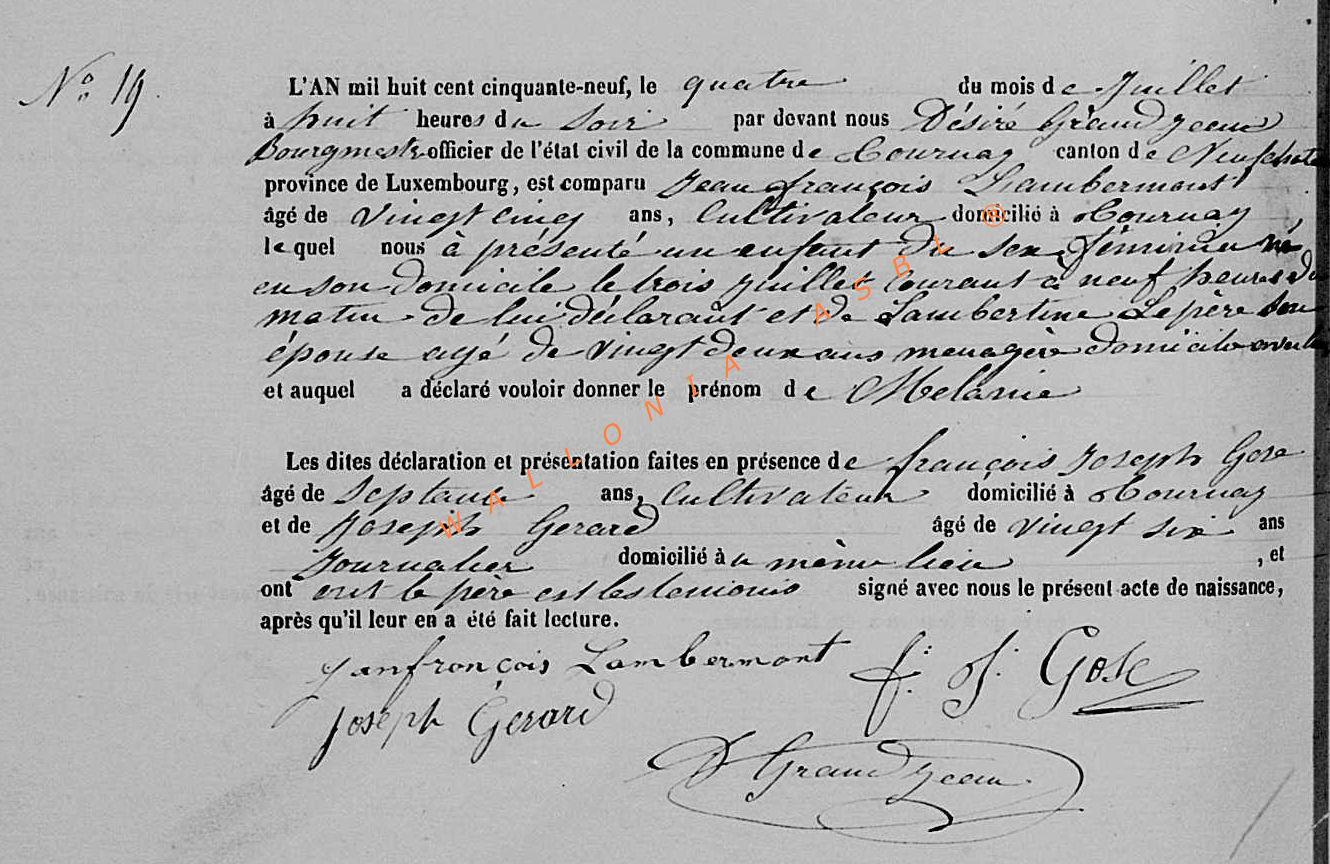 N° 19.
L'AN mil huit cent cinquante-neuf, le quatre du mois de Juillet
à huit heures du Soir par devant nous Désiré Grand jean
Bourgmestre officier de l'état civil de la commune de Tournay canton de Neufchate
province de Luxembourg, est comparu Jean françois Lambermont
âgé de vingt cinq ans, Cultivateur domicilié à Tournay,
lequel nous à présenté un enfant du sex féminin né
en son domicile le trois juillet courant à neuf heures du
matin de lui déclarant et de Lambertine Lepère son
épouse agé de vingt deux ans menagère domicile avec lui
et auquel a déclaré vouloir donner le prénom de Melanie
Les dites déclaration et présentation faites en présence de françois Joseph Gose
âgé de Septante ans, Cultivateur domicilié à Tournay
et de Joseph Gerard âgé de vingt six ans
Journalier domicilié à u même lieu, et
ont ont le père est les temoins signé avec nous le présent acte de naissance,
après qu'il leur en a été fait lecture.
janfronçois Lambermont f. J. Gose
Joseph Gerard
D Grand jean
WALLONIA ASBL ®